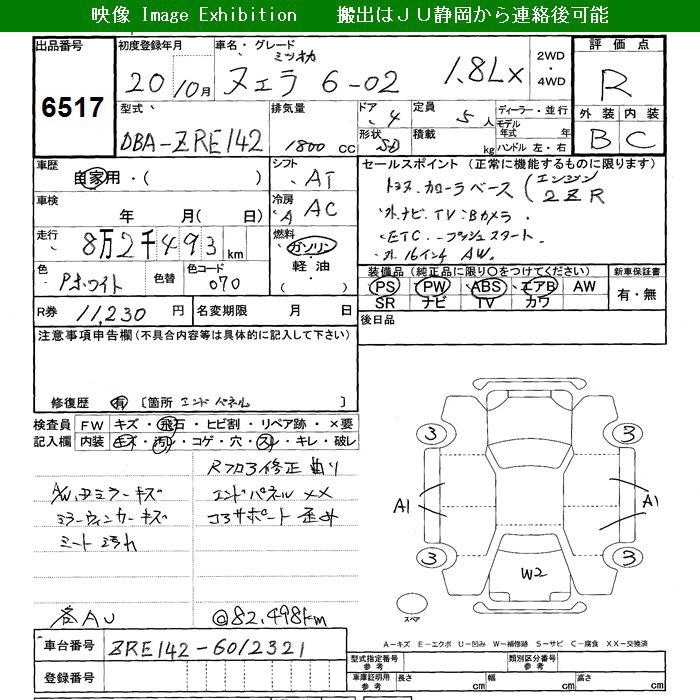 映像 Image Exhibition 搬出はＪＵ静岡から連絡後可能
出品番号 初度登録年月 車名・グレード 評価点
6517
20 10月
ミツオカ
ヌエラ 6-02 1.8LX
2WD・4WD
R
型式 排気量 ドア 定員 ディーラー・並行
DBA-ZRE142 1800 CC 4 5人
形状 SD 積載 kg
モデル年式 年
ハンドル 左・右
外装 内装
B C
車歴 自家用・( )
シフト AT
セールスポイント (正常に機能するものに限ります)
トヨタ カローラベース (エンジン 2ZR
外.ナビ.TV.Bカメラ.
ETC. プッシュスタート.
外.16インチ AW.
車検 年 月( 日)
冷房 A AC
走行 8万2千493km
燃料 ガソリン・軽油・( )
色 Pホワイト 色替 色コード 070
装備品 (純正品に限り○をつけてください) 新車保証書
PS PW ABS エアB AW
SR ナビ TV カワ
有・無
R券 11,230円 名変期限 月 日
後日品
注意事項申告欄(不具合内容等は具体的に記入して下さい)
修復歴 有 〔箇所 エンドパネル 〕
検査員記入欄
FW キズ・飛石・ヒビ割・リペア跡・×要
内装 キズ・汚れ・コゲ・穴・スレ・キレ・破レ
Rフロア修正 曲り
A/W.ドミラーキズ エンドパネル ××
ミラーウィンカーキズ コアサポート 歪み
シート汚れ
各AU @82,498km
3 3
A1 A1
3 3
W2
スペア
A－キズ E－エクボ U－凹み W－補修跡 S－サビ C－腐食 XX－交換済
車台番号 ZRE142-6012321
登録番号
型式指定番号 参考 類別区分番号 参考
車庫証明用 参考 長さ cm 幅 cm 高さ cm